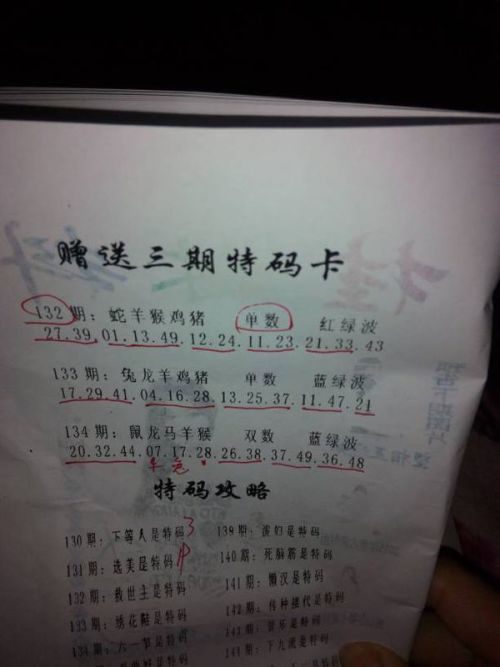 赠送三期特码卡
132期：蛇羊猴鸡猪 单数 红绿波
27.39.01.13.49.12.24.11.23.21.33.43
133期：兔龙羊鸡猪 单数 蓝绿波
17.29.41.04.16.28.13.25.37.11.47.21
134期：鼠龙马羊猴 双数 蓝绿波
20.32.44.07.17.28.26.38.37.49.36.48
特码攻略
130期：下等人是特码3 139期：波幻是特码
131期：选美是特码 140期：死脑筋是特码
132期：救世主是特码 141期：懒汉是特码
133期：绣花鞋是特码 142期：传种接代是特码
134期：六一节是特码 143期：音乐是特码
144期：下九流是特码